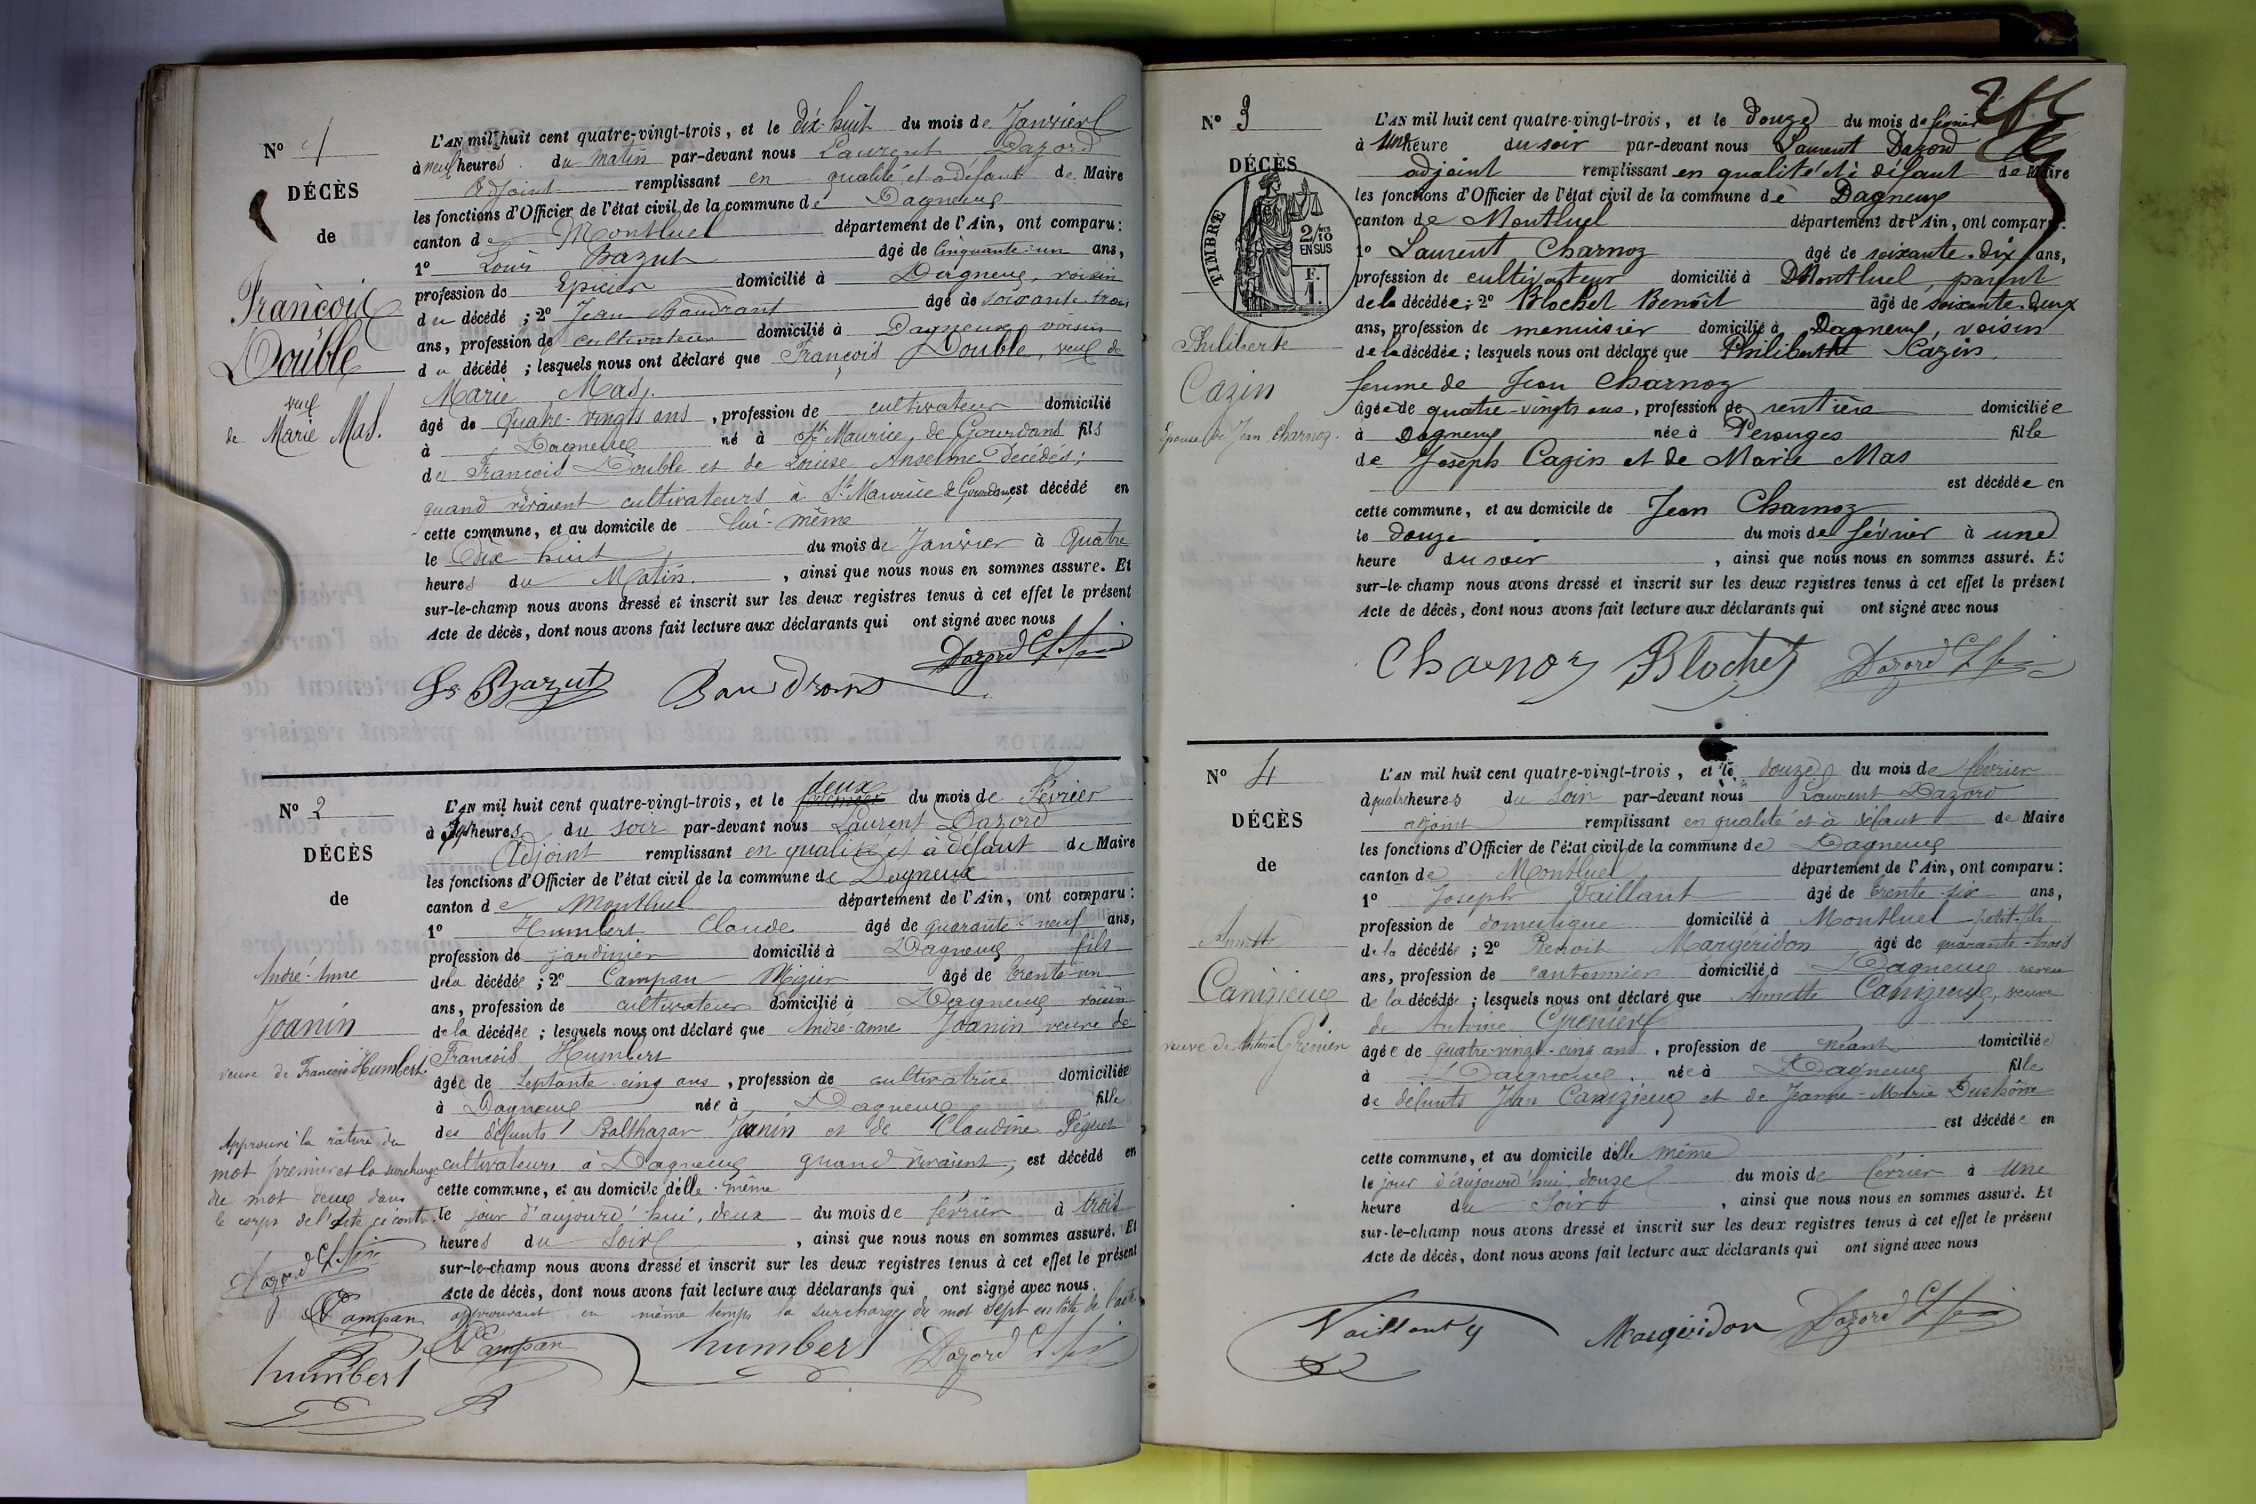 N° 1
DÉCÈS
de
François
Double
veuf
de Marie Mas.
L'AN mil huit cent quatre-vingt-trois, et le dix-huit du mois de Janvier
à neuf heures du matin par-devant nous Laurent Dazord
Adjoint remplissant en qualité et à défaut de Maire
les fonctions d'Officier de l'état civil de la commune de Dagneux
canton de Montluel département de l'Ain, ont comparu:
1° Louis Bazut âgé de Cinquante-un ans,
profession de Epicier domicilié à Dagneux, voisin
du décédé ; 2° Jean Baudrant âgé de soixante-trois
ans, profession de cultivateur domicilié à Dagneux, voisin
du décédé ; lesquels nous ont déclaré que François Double, veuf de
Marie Mas,
âgé de quatre-vingts ans, profession de cultivateur domicilié
à Dagneux né à St Maurice de Gourdans fils
de François Double et de Louise Anselme décédés,
quand vivaient cultivateurs à St Maurice de Gourdans, est décédé en
cette commune, et au domicile de lui-même
le Dix huit du mois de Janvier à quatre
heures du Matin, ainsi que nous nous en sommes assuré. Et
sur-le-champ nous avons dressé et inscrit sur les deux registres tenus à cet effet le présent
Acte de décès, dont nous avons fait lecture aux déclarants qui ont signé avec nous
Bazut Baudrant Dazord
N° 2
DÉCÈS
de
André-Anne
Joanin
veuve de François Humbert.
Approuvé la rature du
mot premier et la surcharge
du mot deux dans
le corps de l'acte ci contre
Dazord
Campan
humbert
L'AN mil huit cent quatre-vingt-trois, et le premier deux du mois de Février
à sept heures du soir par-devant nous Laurent Dazord
Adjoint remplissant en qualité et à défaut de Maire
les fonctions d'Officier de l'état civil de la commune de Dagneux
canton de Montluel département de l'Ain, ont comparu:
1° Humbert Claude âgé de quarante-neuf ans,
profession de jardinier domicilié à Dagneux fils
de la décédée ; 2° Campan Mizier âgé de trente-un
ans, profession de cultivateur domicilié à Dagneux voisin
de la décédée ; lesquels nous ont déclaré que André-anne Joanin veuve de
François Humbert
âgée de septante-cinq ans, profession de cultivatrice domiciliée
à Dagneux née à Dagneux fille
des défunts Balthazar Joanin et de Claudine Péguet
cultivateurs à Dagneux quand vivaient, est décédé en
cette commune, et au domicile d'elle-même
le jour d'aujourd'hui, deux du mois de février à trois
heures du soir, ainsi que nous nous en sommes assuré. Et
sur-le-champ nous avons dressé et inscrit sur les deux registres tenus à cet effet le présent
Acte de décès, dont nous avons fait lecture aux déclarants qui ont signé avec nous.
approuvant en même temps la surcharge du mot sept en tête de l'acte
Campan humbert Dazord
N° 3
DÉCÈS
TIMBRE
2/10
EN SUS
F.
1.
Philiberte
Cazin
épouse de Jean Charnoz.
L'AN mil huit cent quatre-vingt-trois, et le douze du mois de février
à une heure du soir par-devant nous Laurent Dazord
adjoint remplissant en qualité et à défaut de Maire
les fonctions d'Officier de l'état civil de la commune de Dagneux
canton de Montluel département de l'Ain, ont comparu:
1° Laurent Charnoz âgé de soixante-dix ans,
profession de cultivateur domicilié à Montluel, parent
de la décédée ; 2° Blochet Benoît âgé de soixante-deux
ans, profession de menuisier domicilié à Dagneux, voisin
de la décédée ; lesquels nous ont déclaré que Philiberthe Cazin,
femme de Jean Charnoz
âgée de quatre-vingts ans, profession de rentière domiciliée
à Dagneux née à Perouges fille
de Joseph Cazin et de Marie Mas
est décédée en
cette commune, et au domicile de Jean Charnoz
le douze du mois de février à une
heure du soir, ainsi que nous nous en sommes assuré. Et
sur-le-champ nous avons dressé et inscrit sur les deux registres tenus à cet effet le présent
Acte de décès, dont nous avons fait lecture aux déclarants qui ont signé avec nous
Charnoz Blochet Dazord
N° 4
DÉCÈS
de
Annette
Canizieux
veuve de Antoine Grenier
L'AN mil huit cent quatre-vingt-trois, et le douze du mois de février
à quatre heures du soir par-devant nous Laurent Dazord
adjoint remplissant en qualité et à défaut de Maire
les fonctions d'Officier de l'état civil de la commune de Dagneux
canton de Montluel département de l'Ain, ont comparu:
1° Joseph Vaillant âgé de trente-six ans,
profession de domestique domicilié à Montluel petit-fils
de la décédée ; 2° Benoit Margéridon âgé de quarante-trois
ans, profession de cantonnier domicilié à Dagneux neveu
de la décédée ; lesquels nous ont déclaré que Annette Canizieux, veuve
de Antoine Grenier
âgée de quatre-vingt-cinq ans, profession de néant domiciliée
à Dagneux, née à Dagneux fille
de défunts Jean Canizieux et de Jeanne-Marie
est décédée en
cette commune, et au domicile d'elle même
le jour d'aujourd'hui, douze du mois de février à une
heure du soir, ainsi que nous nous en sommes assuré. Et
sur-le-champ nous avons dressé et inscrit sur les deux registres tenus à cet effet le présent
Acte de décès, dont nous avons fait lecture aux déclarants qui ont signé avec nous
Vaillant Margéridon Dazord